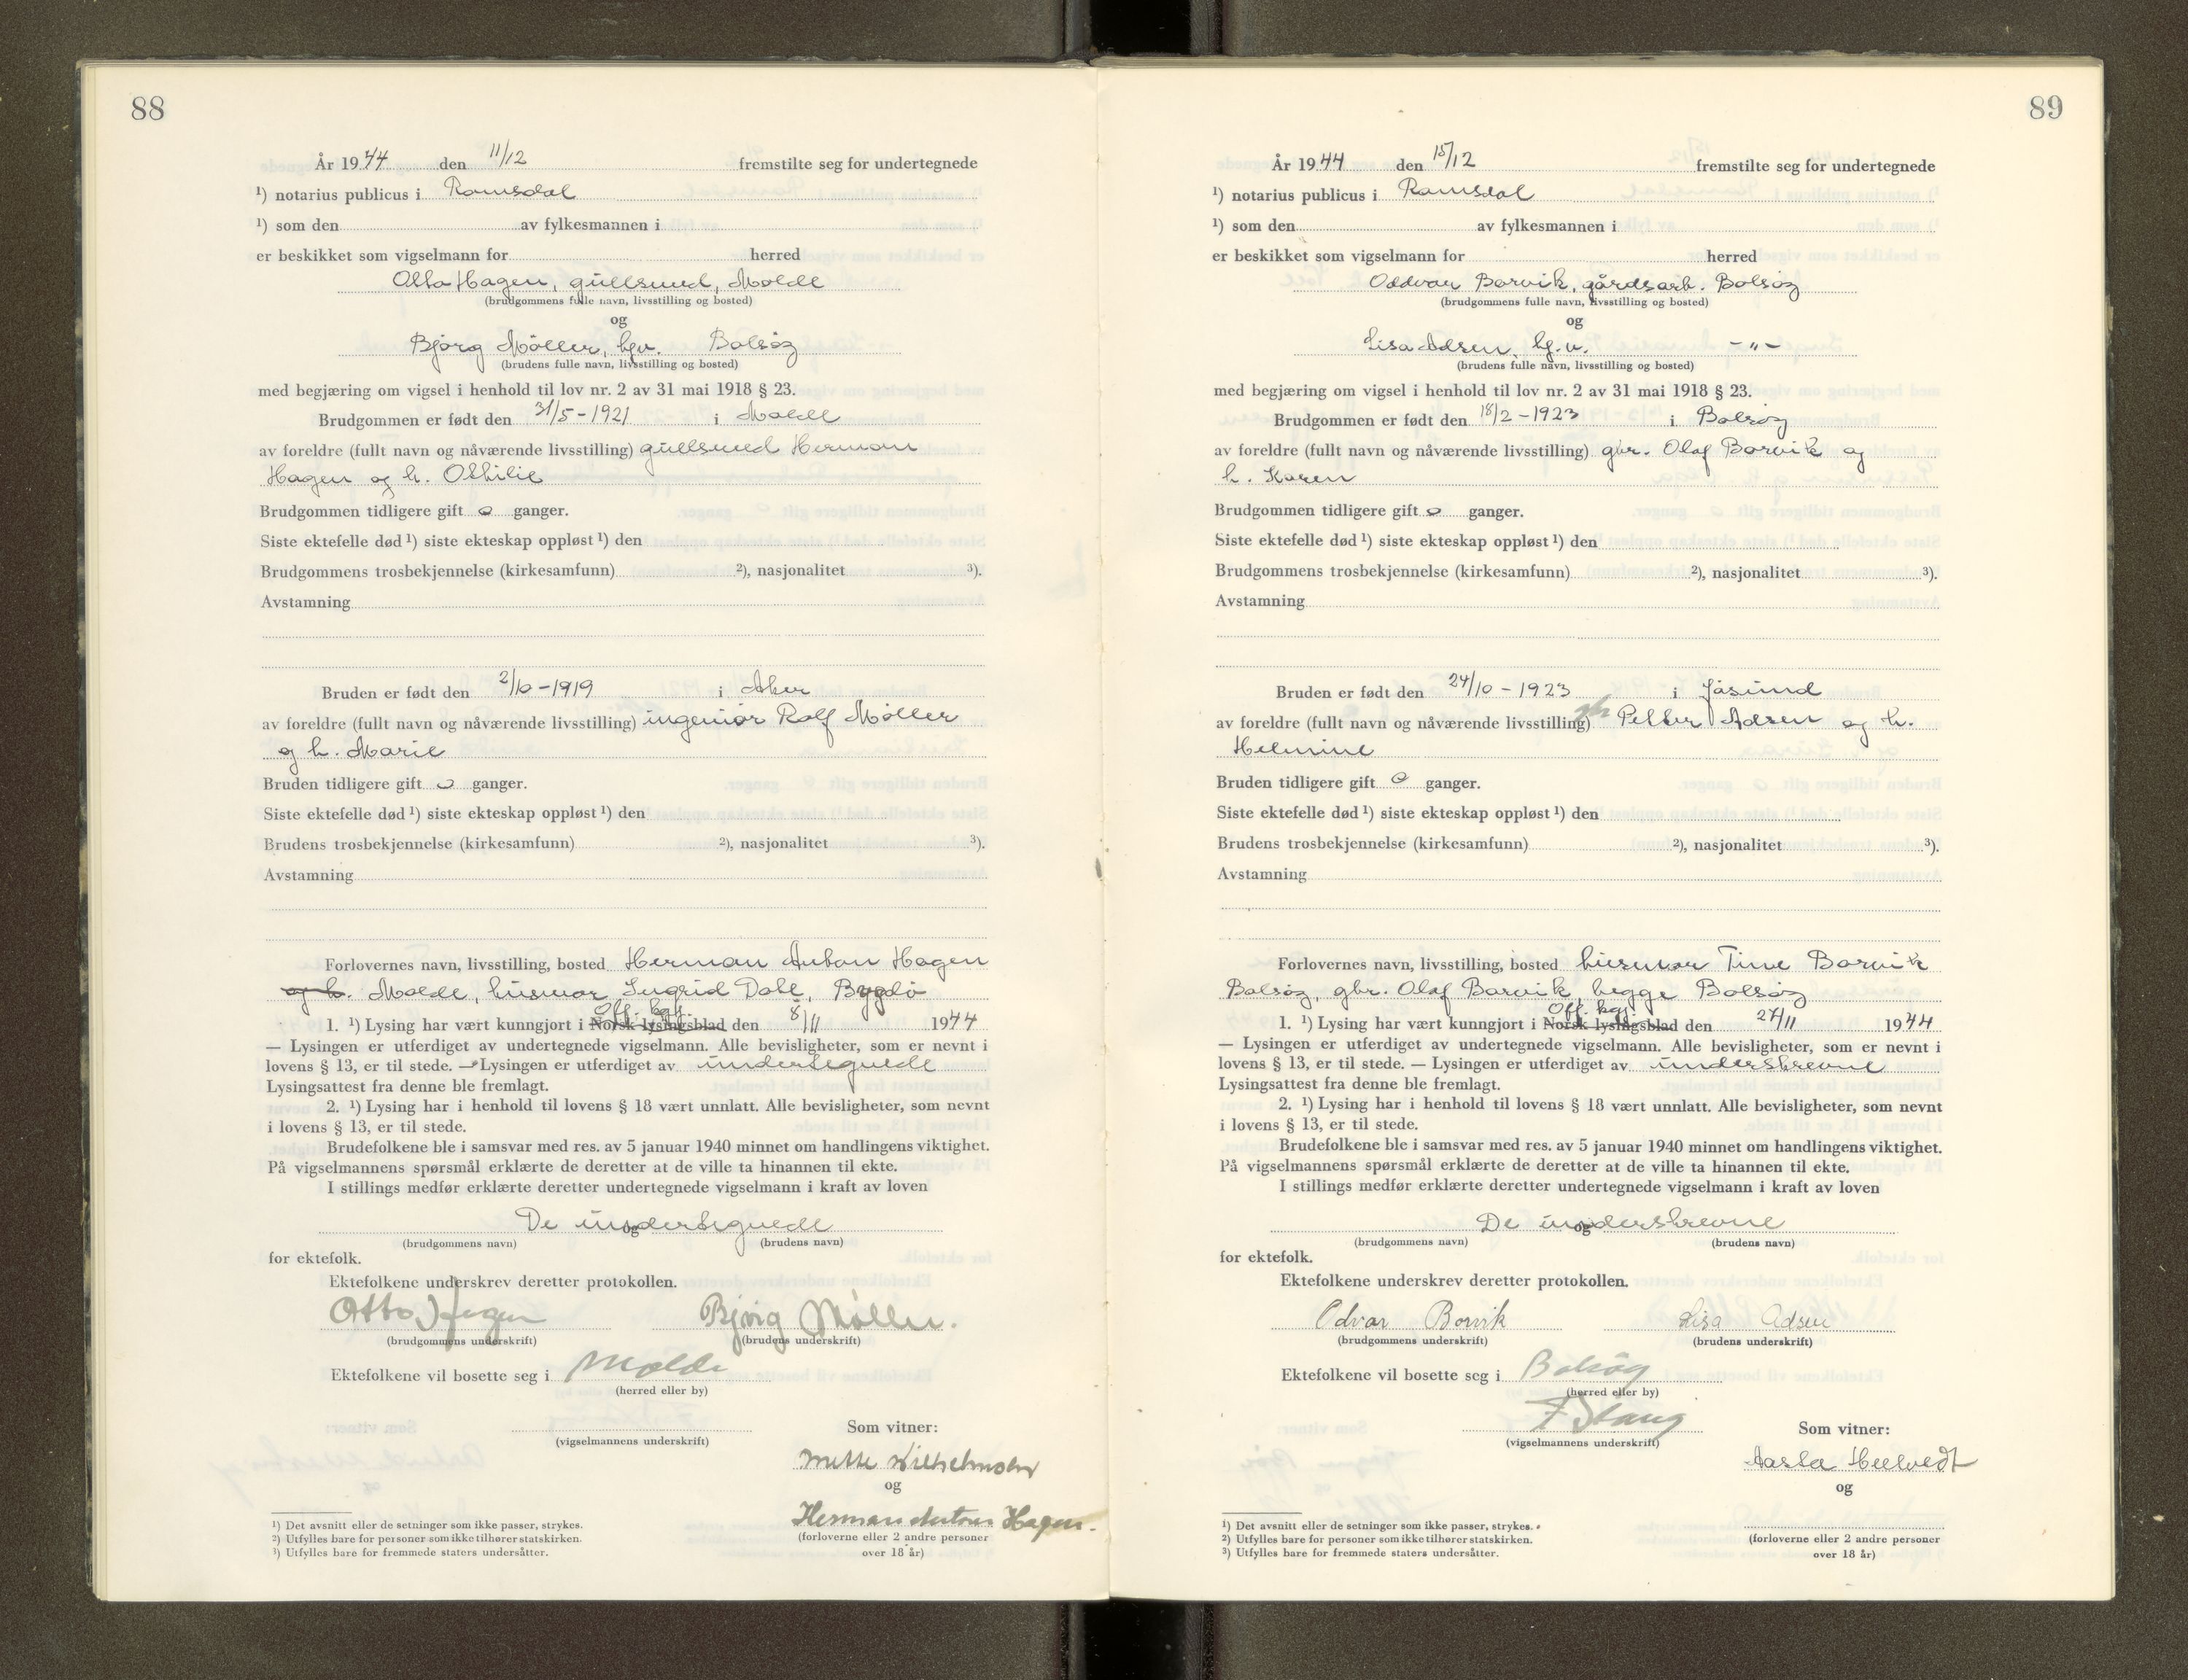 88
År 1944 den 11/12 fremstilte seg for undertegnede
¹) notarius publicus i Romsdal
¹) som den av fylkesmannen i
er beskikket som vigselmann for herred
Otto Hagen, gullsmed, Molde
(brudgommens fulle navn, livsstilling og bosted)
og
Bjørg Møller, hjv. Bolsøy
(brudens fulle navn, livsstilling og bosted)
med begjæring om vigsel i henhold til lov nr. 2 av 31 mai 1918 § 23.
Brudgommen er født den 31/5-1921 i Molde
av foreldre (fullt navn og nåværende livsstilling) gullsmed Herman
Hagen og h. Othilie
Brudgommen tidligere gift 0 ganger.
Siste ektefelle død ¹) siste ekteskap oppløst ¹) den
Brudgommens trosbekjennelse (kirkesamfunn) ²), nasjonalitet ³).
Avstamning
Bruden er født den 2/10-1919 i Aker
av foreldre (fullt navn og nåværende livsstilling) ingeniør Rolf Møller
og h. Marie
Bruden tidligere gift 0 ganger.
Siste ektefelle død ¹) siste ekteskap oppløst ¹) den
Brudens trosbekjennelse (kirkesamfunn) ²), nasjonalitet ³).
Avstamning
Forlovernes navn, livsstilling, bosted Herman Anton Hagen
og h. Molde, husmor Ingrid Dahl, Bygdø
Off. kgj.
1. ¹) Lysing har vært kunngjort i Norsk lysingsblad den 8/11 1944
— Lysingen er utferdiget av undertegnede vigselmann. Alle bevisligheter, som er nevnt i
lovens § 13, er til stede. — Lysingen er utferdiget av undertegnede
Lysingsattest fra denne ble fremlagt.
2. ¹) Lysing har i henhold til lovens § 18 vært unnlatt. Alle bevisligheter, som nevnt
i lovens § 13, er til stede.
Brudefolkene ble i samsvar med res. av 5 januar 1940 minnet om handlingens viktighet.
På vigselmannens spørsmål erklærte de deretter at de ville ta hinannen til ekte.
I stillings medfør erklærte deretter undertegnede vigselmann i kraft av loven
De undertegnede
og
(brudgommens navn) (brudens navn)
for ektefolk.
Ektefolkene underskrev deretter protokollen.
Otto Hagen Bjørg Møller.
(brudgommens underskrift) (brudens underskrift)
Ektefolkene vil bosette seg i Molde
(herred eller by)
Som vitner:
(vigselmannens underskrift)
Mette Wilhelmsen
og
Herman Anton Hagen.
(forloverne eller 2 andre personer
over 18 år)
¹) Det avsnitt eller de setninger som ikke passer, strykes.
²) Utfylles bare for personer som ikke tilhører statskirken.
³) Utfylles bare for fremmede staters undersåtter.
89
År 1944 den 15/12 fremstilte seg for undertegnede
¹) notarius publicus i Romsdal
¹) som den av fylkesmannen i
er beskikket som vigselmann for herred
Oddvar Borvik, gårdsarb. Bolsøy
(brudgommens fulle navn, livsstilling og bosted)
og
Lisa Adsen, hj.v. -"-
(brudens fulle navn, livsstilling og bosted)
med begjæring om vigsel i henhold til lov nr. 2 av 31 mai 1918 § 23.
Brudgommen er født den 18/2-1923 i Bolsøy
av foreldre (fullt navn og nåværende livsstilling) gbr. Olaf Borvik og
h. Karen
Brudgommen tidligere gift 0 ganger.
Siste ektefelle død ¹) siste ekteskap oppløst ¹) den
Brudgommens trosbekjennelse (kirkesamfunn) ²), nasjonalitet ³).
Avstamning
Bruden er født den 24/10-1923 i Jøsund
av foreldre (fullt navn og nåværende livsstilling) gbr Petter Adsen og h.
Helmine
Bruden tidligere gift 0 ganger.
Siste ektefelle død ¹) siste ekteskap oppløst ¹) den
Brudens trosbekjennelse (kirkesamfunn) ²), nasjonalitet ³).
Avstamning
Forlovernes navn, livsstilling, bosted husmor Tine Borvik
Bolsøy, gbr. Olaf Borvik, begge Bolsøy
Off. kgj.
1. ¹) Lysing har vært kunngjort i Norsk lysingsblad den 27/11 1944
— Lysingen er utferdiget av undertegnede vigselmann. Alle bevisligheter, som er nevnt i
lovens § 13, er til stede. — Lysingen er utferdiget av underskrevne
Lysingsattest fra denne ble fremlagt.
2. ¹) Lysing har i henhold til lovens § 18 vært unnlatt. Alle bevisligheter, som nevnt
i lovens § 13, er til stede.
Brudefolkene ble i samsvar med res. av 5 januar 1940 minnet om handlingens viktighet.
På vigselmannens spørsmål erklærte de deretter at de ville ta hinannen til ekte.
I stillings medfør erklærte deretter undertegnede vigselmann i kraft av loven
De underskrevne
og
(brudgommens navn) (brudens navn)
for ektefolk.
Ektefolkene underskrev deretter protokollen.
Odvar Borvik Lisa Adsen
(brudgommens underskrift) (brudens underskrift)
Ektefolkene vil bosette seg i Bolsøy
(herred eller by)
F Stang
(vigselmannens underskrift)
Som vitner:
Aasta Heelvedt
og
(forloverne eller 2 andre personer
over 18 år)
¹) Det avsnitt eller de setninger som ikke passer, strykes.
²) Utfylles bare for personer som ikke tilhører statskirken.
³) Utfylles bare for fremmede staters undersåtter.